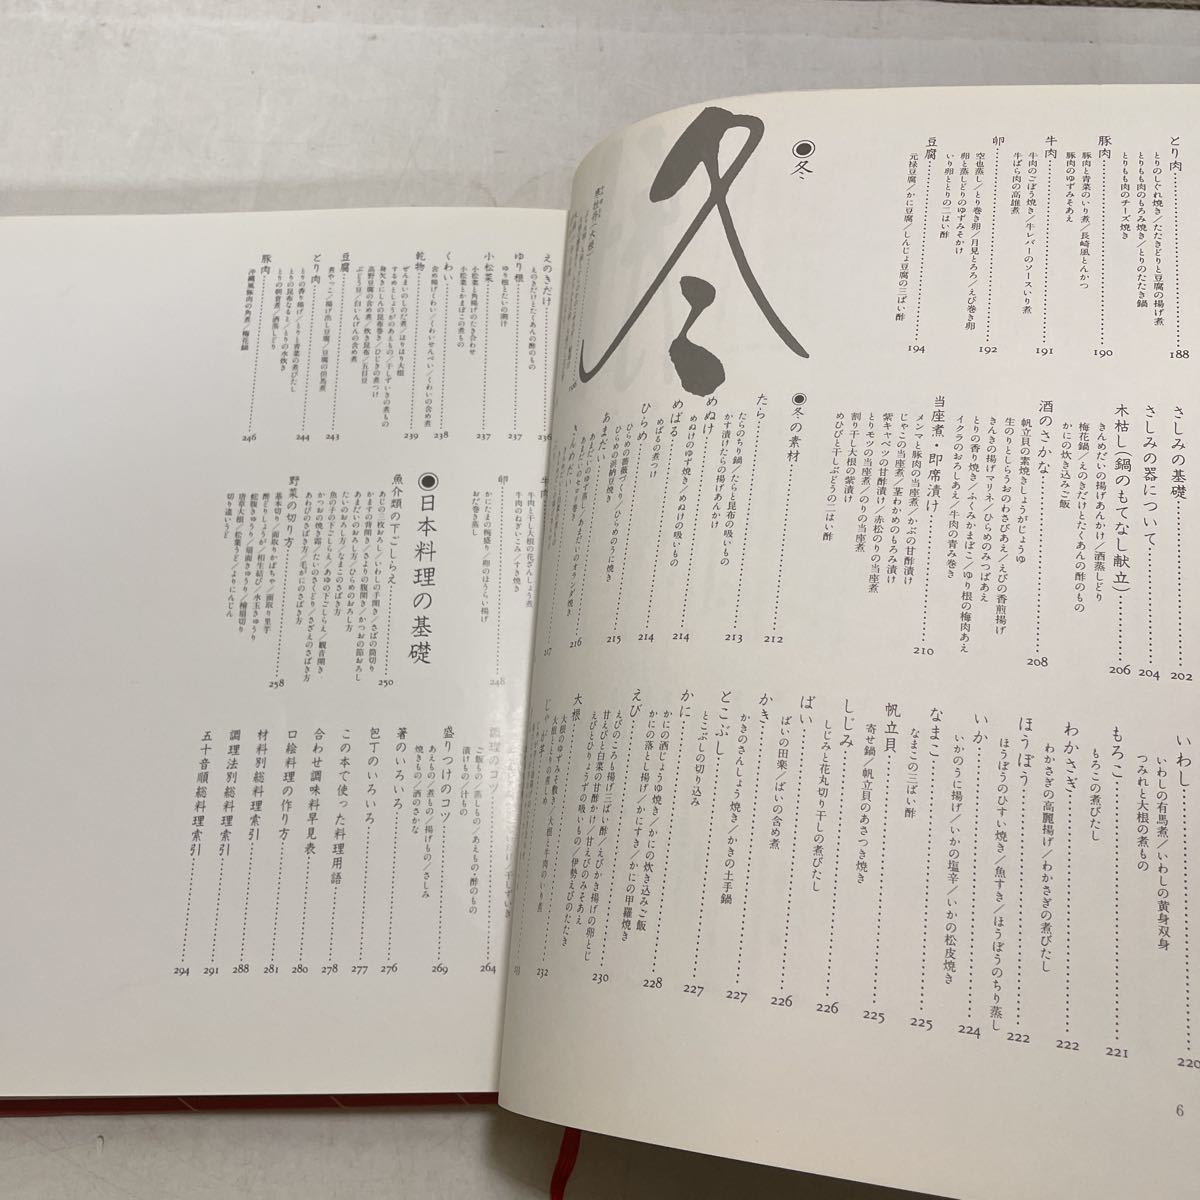 とり肉……188
とりのしぐれ焼き/たたきどりと豆腐の揚げ煮
とりもも肉のもろみ焼き/とりのたたき鍋
とりもも肉のチーズ焼き
豚肉……190
豚肉と青菜のいり煮/長崎風とんかつ
豚肉のゆずみそあえ
牛肉……191
牛肉のごぼう焼き/牛レバーのソースいり煮
牛ばら肉の高雄煮
卵……192
空也蒸し/とり巻き卵/月見とろろ/えび巻き卵
卵と蒸しどりのゆずみそかけ
いり卵ととりの二はい酢
豆腐……194
元禄豆腐/かに豆腐/しんじょ豆腐の三ばい酢
◉冬
冬
さしみの基礎……202
さしみの器について……204
木枯し(鍋のもてなし献立)……206
きんめだいの揚げあんかけ/酒蒸しどり
梅花鍋/えのきだけとたくあんの酢のもの
かにの炊き込みご飯
酒のさかな……208
帆立貝の素焼きしょうがじょうゆ
生のりとしらうおのわさびあえ/えびの香煎揚げ
きんきの揚げマリネ/ひらめのみつばあえ
とりの香り焼き/ふくみかまぼこ/ゆり根の梅肉あえ
イクラのおろしあえ/牛肉の青み巻き
当座煮・即席漬け……210
メンマと豚肉の当座煮/かぶの甘酢漬け
じゃこの当座煮/茎わかめのもろみ漬け
紫キャベツの甘酢漬け/赤松のりの当座煮
とりモツの当座煮/のりの当座煮
割り干し大根の紫漬け
めひびと干しぶどうの二はい酢
◉冬の素材
たら……212
たらのちり鍋/たらと昆布の吸いもの
かす漬けたらの揚げあんかけ
めぬけ……213
めぬけのゆず焼き/めぬけの吸いもの
めばる……214
めばるの煮つけ
ひらめ……214
ひらめの薔薇づくり/ひらめのうに焼き
ひらめの浜納豆焼き
あまだい……215
あまだいのゆず蒸し/あまだいのオランダ焼き
きんめだい……216
いわし……220
いわしの有馬煮/いわしの黄身双身
つみれと大根の煮もの
もろこ……221
もろこの煮びたし
わかさぎ……222
わかさぎの高麗揚げ/わかさぎの煮びたし
ほうぼう……222
ほうぼうのひすい焼き/魚すき/ほうぼうのちり蒸し
いか……224
いかのうに揚げ/いかの塩辛/いかの松皮焼き
なまこ……225
なまこの三ばい酢
帆立貝……225
寄せ鍋/帆立貝のあさつき焼き
しじみ……226
しじみと花丸切り干しの煮びたし
ばい……226
ばいの田楽/ばいの含め煮
かき……227
かきのさんしょう焼き/かきの土手鍋
とこぶし……227
とこぶしの切り込み
かに……228
かにの酒じょうゆ焼き/かにの炊き込みご飯
かにの落とし揚げ/かにすき/かにの甲羅焼き
えび……230
えびのころも揚げ三ばい酢/えびかき揚げの卵とじ
甘えびと白菜の甘酢かけ/甘えびのみそあえ
えびとひりょうずの吸いもの/伊勢えびのたたき
大根……232
大根のゆずみそ敷き/大根と牛肉のいり煮
6
えのきだけ……236
えのきだけとたくあんの酢のもの
ゆり根……237
ゆり根とたいの潮汁
小松菜……237
小松菜と角揚げのたき合わせ
小松菜とかまぼこの煮もの
くわい……238
含め揚げくわい/くわいせんべい/くわいの含め煮
乾物……239
ぜんまいのしのだ煮/はりはり大根
するめとしょうがのあえもの/干しずいきの煮もの
身欠きにしんの昆布巻き/ひじきの煮つけ
高野豆腐の含め煮/炊き昆布/五目豆
ぶどう豆/白いんげんの含め煮
豆腐……243
煮やっこ/揚げ出し豆腐/豆腐の但馬煮
とり肉……244
とりの香り揚げ/とりと青菜の煮びたし
とりの昆布なると/とりの水炊き
とりの朝倉煮/酒蒸しどり
豚肉……246
沖縄風豚肉の角煮/梅花鍋
牛肉……247
牛肉と干し大根の花ざんしょう煮
牛肉のねぎいこみ/すき焼き
卵……248
かにたまの桝盛り/卵のほうらい揚げ
おだ巻き蒸し
◉日本料理の基礎
魚介類の下ごしらえ……250
あじの三枚おろし/いわしの手開き/さばの筒切り
かますの背開き/さよりの腹開き/かつおの節おろし
あまだいのおろし方/ひらめのおろし方
たいのおろし方/なまこのさばき方
魚の子の下ごしらえ/あゆの下ごしらえ/観音開き
かつおの焼き霜/たいのさくどり/さざえのさばき方
あわびのさばき方/毛がにのさばき方
野菜の切り方……258
基本切り/面取りかぼちゃ/面取り里芋
酢どりしょうが/相生結び/水玉きゅうり
蛇腹きゅうり/扇面きゅうり/檜扇切り
唐草大根/松葉うど/よりにんじん
切り違いうど
調理のコツ……264
ご飯もの/蒸しもの/あえもの・酢のもの
漬けもの/汁もの
盛りつけのコツ……269
あえもの/煮もの/揚げもの/さしみ
焼きもの/酒のさかな
箸のいろいろ……276
包丁のいろいろ……277
この本で使った料理用語……278
合わせ調味料早見表……280
口絵料理の作り方……281
材料別総料理索引……288
調理法別総料理索引……291
五十音順総料理索引……294